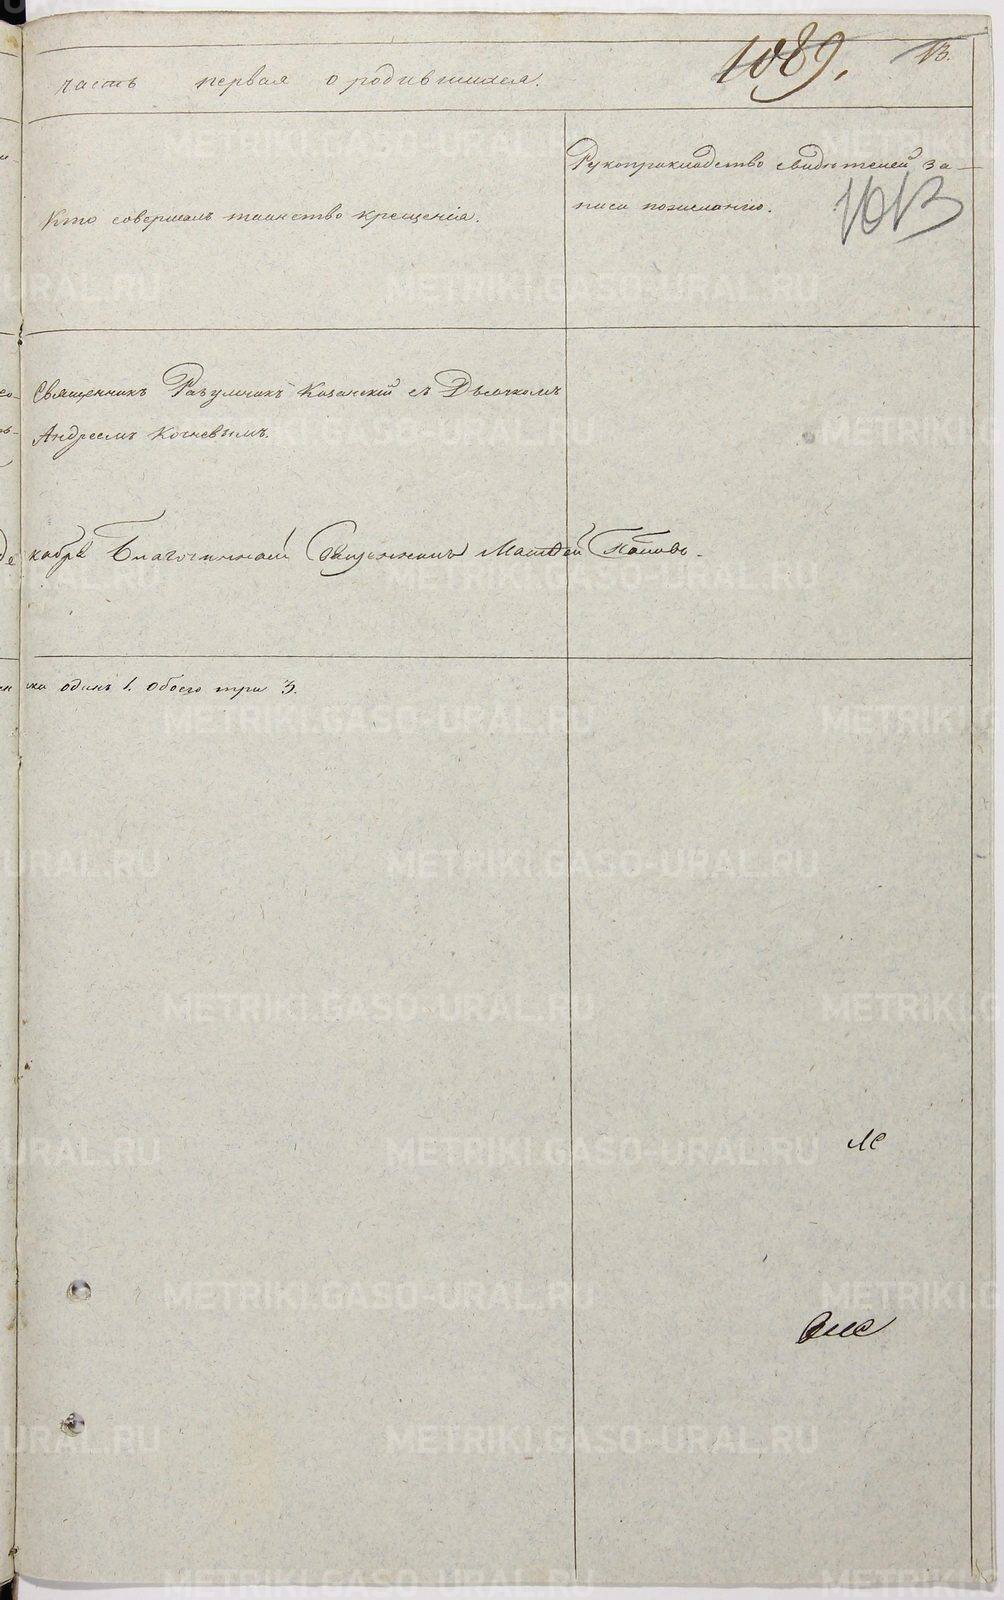 часть первая о родившихся.
1089.
13.
Кто совершалъ таинство крещенія.
Рукоприкладство свидѣтелей за-
писи по желанію.
1013
Священникъ Разумникъ Казанскій съ Дьячкомъ
Андреемъ Кочневымъ.
кабря Благочинный Священникъ Матвей Поповъ.
ска одинъ 1. Обоего три 3.
METRIKI.GASO-URAL.RU